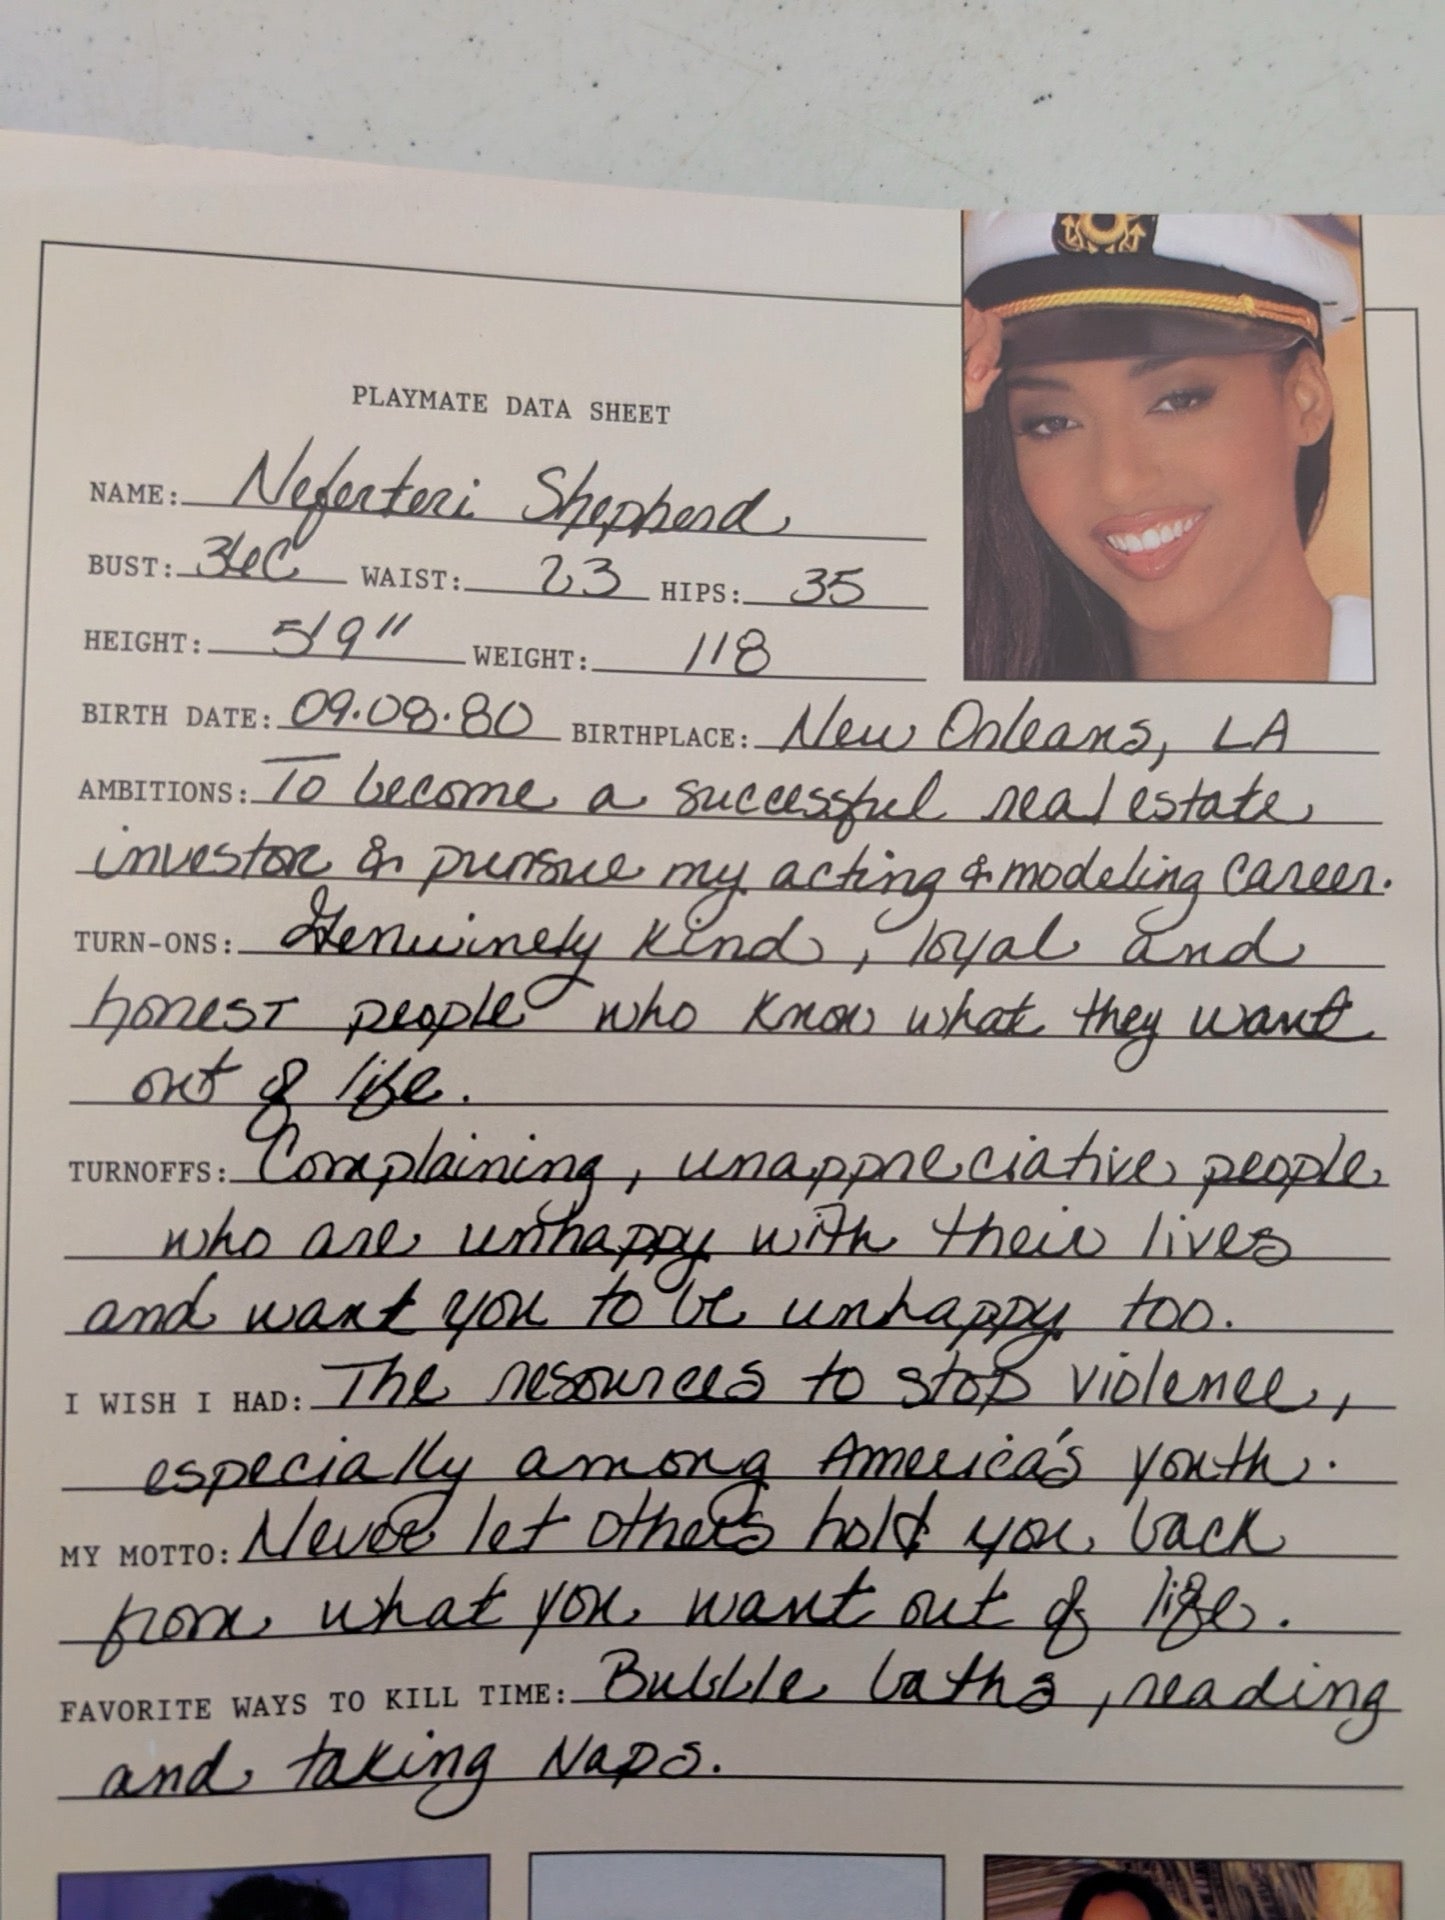 PLAYMATE DATA SHEET
NAME: Neferteri Shepherd
BUST: 36C WAIST: 23 HIPS: 35
HEIGHT: 5'9" WEIGHT: 118
BIRTH DATE: 09.08.80 BIRTHPLACE: New Orleans, LA
AMBITIONS: To become a successful real estate
investor & pursue my acting & modeling career.
TURN-ONS: Genuinely kind, loyal and
honest people who know what they want
out of life.
TURNOFFS: Complaining, unappreciative people
who are unhappy with their lives
and want you to be unhappy too.
I WISH I HAD: The resources to stop violence,
especially among America's youth.
MY MOTTO: Never let others hold you back
from what you want out of life.
FAVORITE WAYS TO KILL TIME: Bubble baths, reading
and taking Naps.